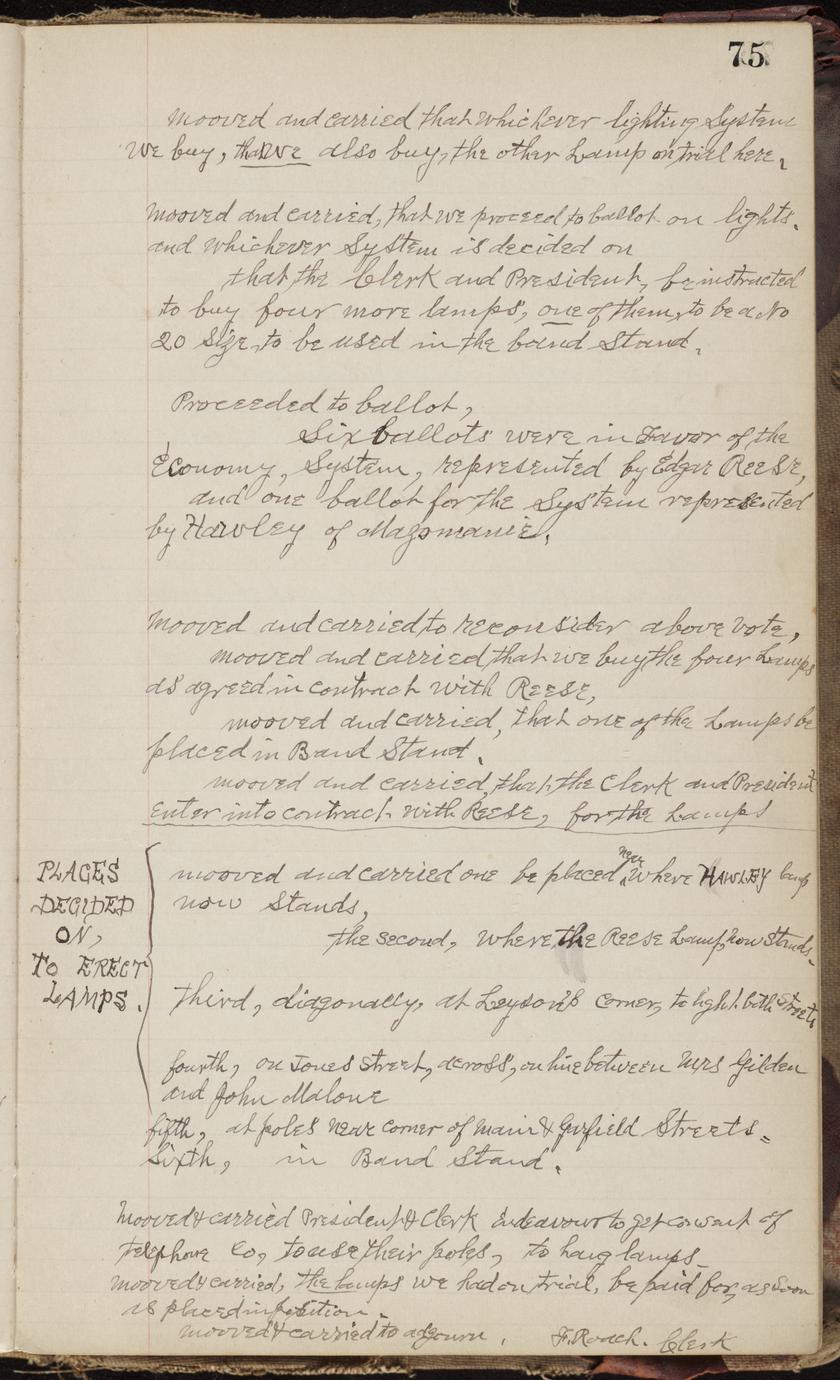 75
mooved and carried that whichever lighting System
We buy, that we also buy, the other Lamp on trial here.
mooved and carried, that we proceed to ballot on lights.
and whichever System is decided on
that, the Clerk and President, be instructed
to buy four more lamps, one of them, to be a No
20 Size, to be used in the band Stand.
Proceeded to ballot,
Six ballots were in Favor of the
Economy, System, represented by Edgar Reese,
and one ballot for the System represented
by Hawley of Mazomanie.
mooved and carried, to reconsider above vote,
mooved and carried, that we buy, the four Lamps
as agreed in contract with Reese,
mooved and carried, that one of the Lamps be
placed in Band Stand.
mooved and carried, that, the Clerk and President
Enter into contract with Reese, for the Lamps
PLACES
DECIDED
ON,
TO ERECT
LAMPS.
mooved and carried one be placed near where HAWLEY lamp
now Stands,
the second, where the Reese Lamp now Stands.
third, diagonally, at Leyson's corner, to light both Streets
fourth, on Jones Street, across, on line between Mrs Gilden
and John Malone
fifth, at poles near corner of main & Garfield Streets.
Sixth, in Band Stand.
Mooved & carried President & Clerk Endeavour to get consent of
Telephone Co, to use their poles, to hang lamps.
mooved & carried, the lamps we had on trial, be paid for, as soon
as placed in position.
mooved & carried to adjourn. F. Roach. Clerk